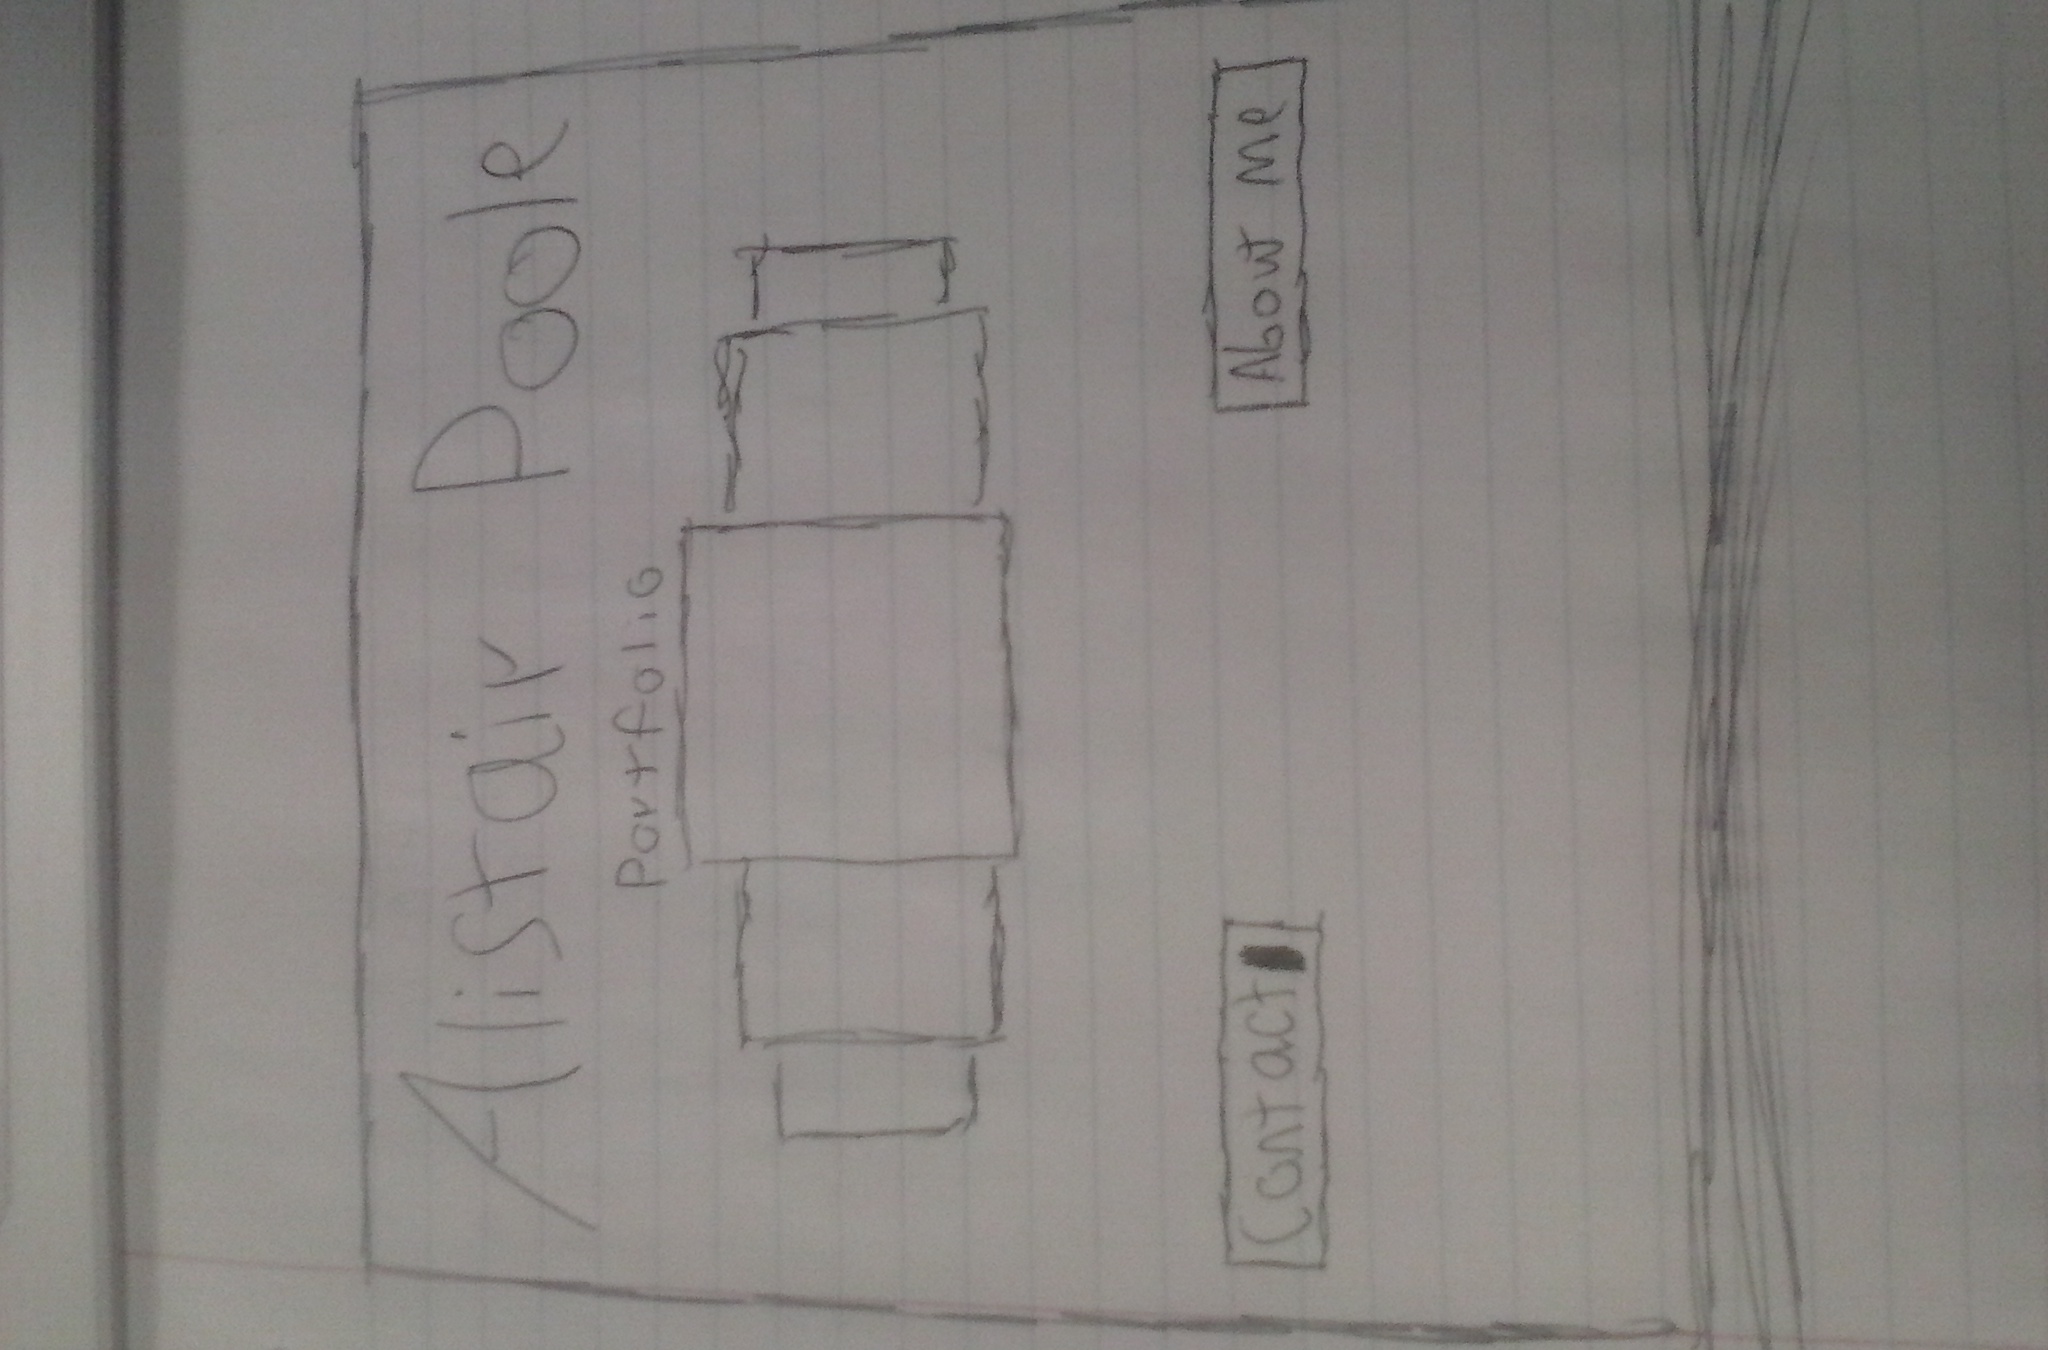 Alistair Poole
Portfolio
Contact
About Me